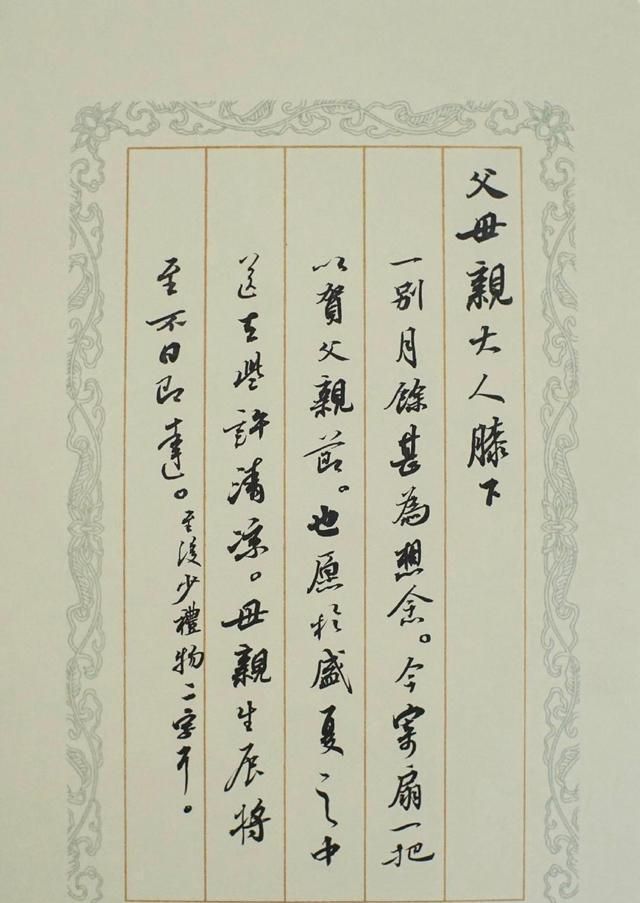 父母親大人膝下
一别月餘甚為想念。今寄扇一把
以賀父親節。也愿於盛夏之中
送去些許清凉。母親生辰將
至不日即達。至後少禮物二字